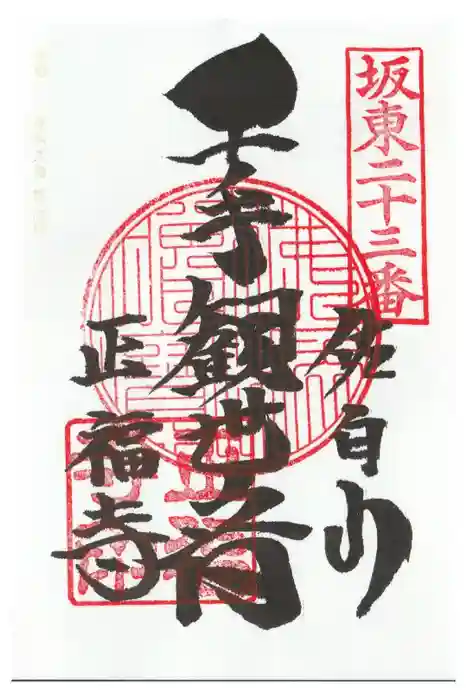 坂東二十三番
佐白山
千手観世音
正福寺